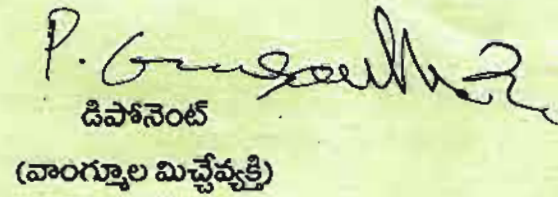 P.
డిపోనెంట్
(వాంగ్మూల మిచ్చేవ్యక్తి)